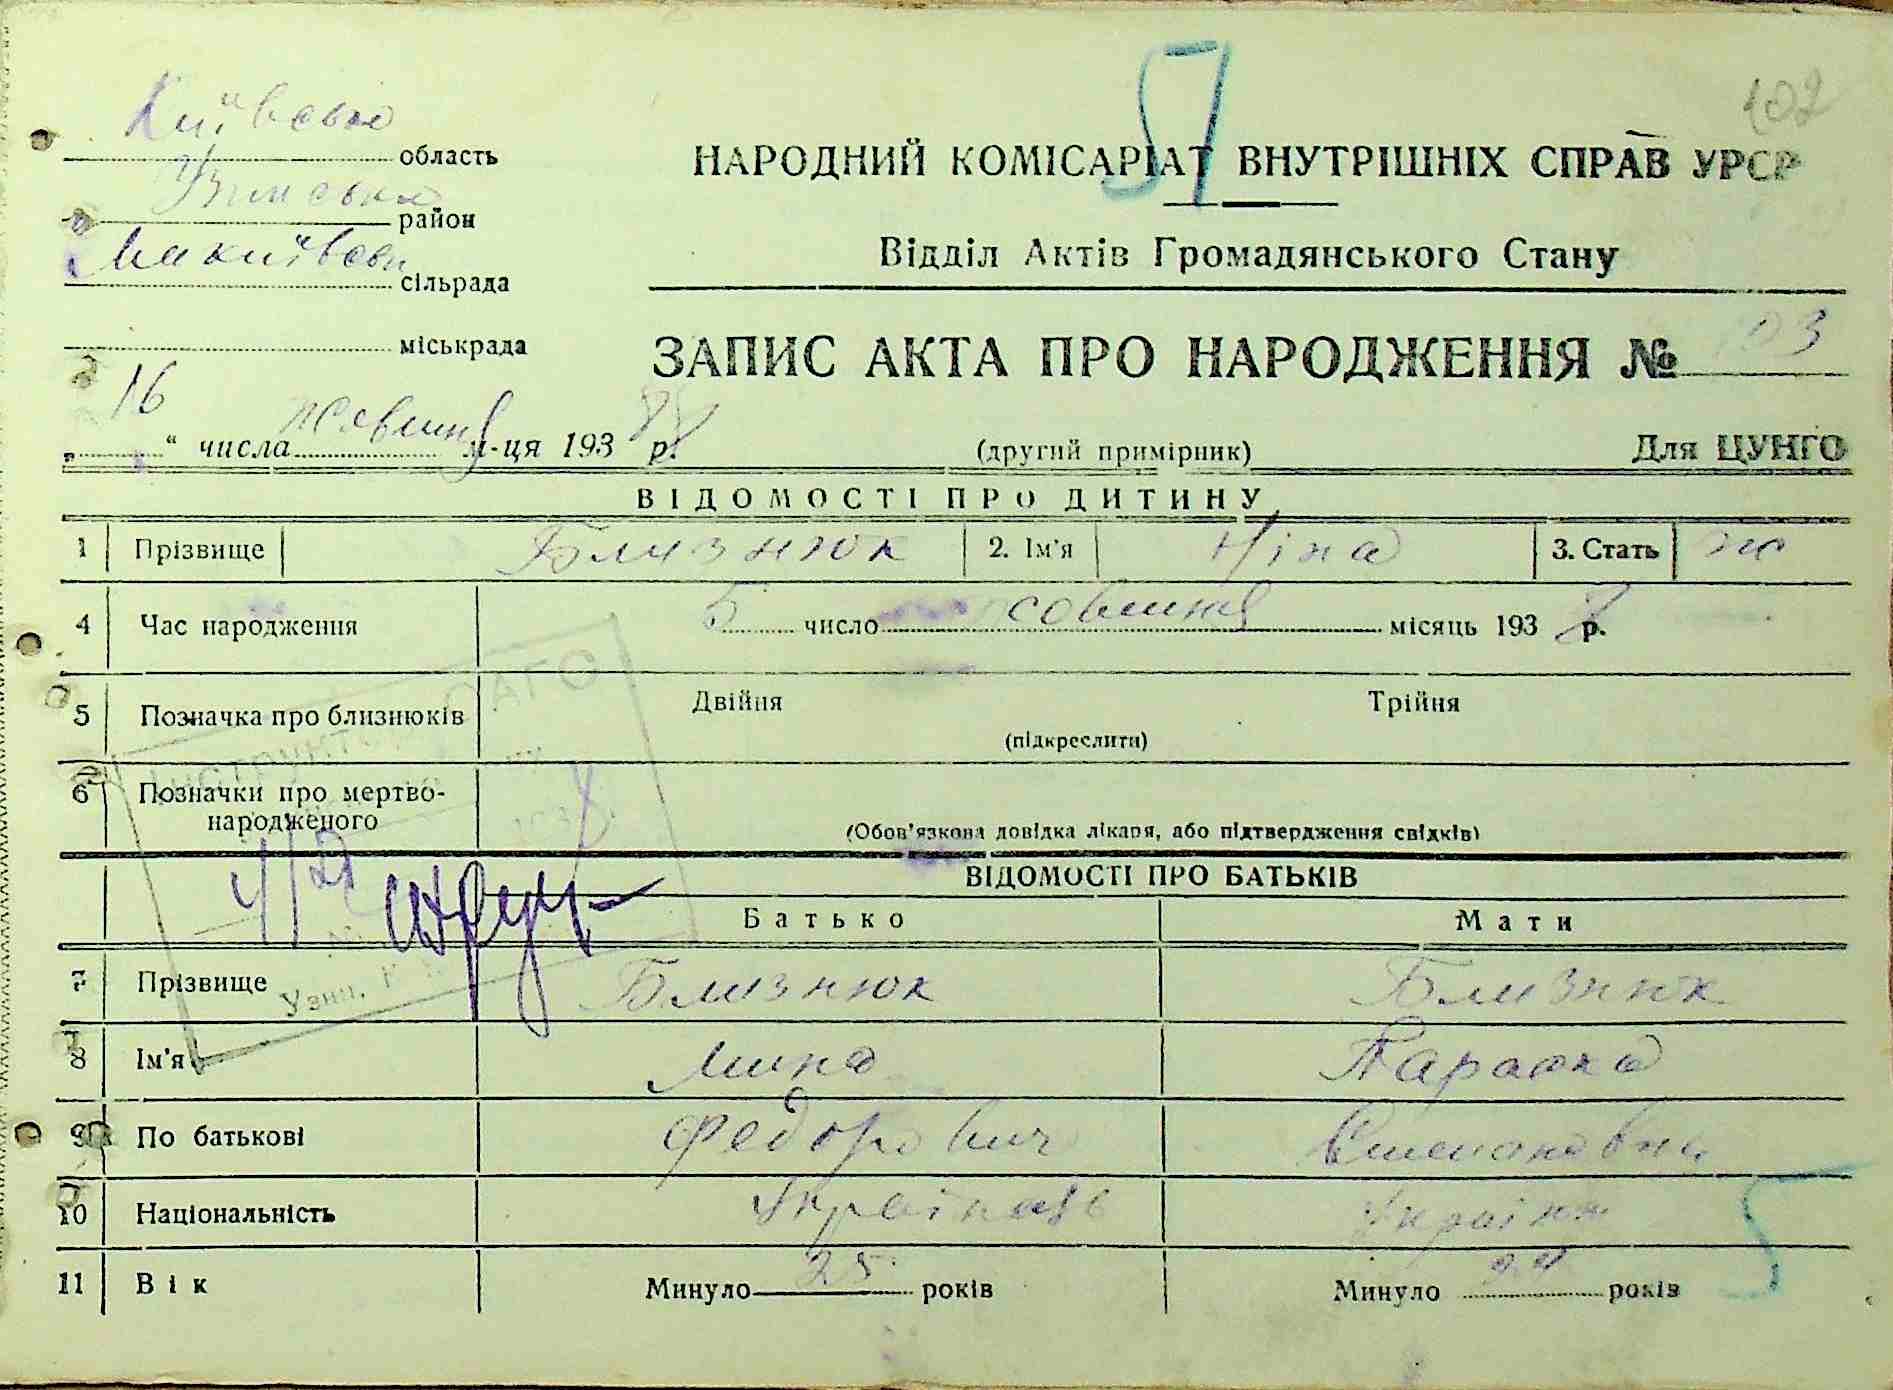 57
102
Київська область
Узинський район
Макиївська сільрада
міськрада
НАРОДНИЙ КОМІСАРІАТ ВНУТРІШНІХ СПРАВ УРСР
Відділ Актів Громадянського Стану
ЗАПИС АКТА ПРО НАРОДЖЕННЯ № 103
„16“ числа жовтня м-ця 1938 р.
(другий примірник)
Для ЦУНГО
ВІДОМОСТІ ПРО ДИТИНУ
1 Прізвище Близнюк 2. Ім'я Ніна 3. Стать ж
4 Час народження 5 число жовтня місяць 1938 р.
5 Позначка про близнюків Двійня Трійня
(підкреслити)
6 Позначки про мертво-
народженого
(Обов'язкова довідка лікаря, або підтвердження свідків)
ВІДОМОСТІ ПРО БАТЬКІВ
Батько Мати
7 Прізвище Близнюк Близнюк
8 Ім'я Мина Параска
9 По батькові Федорович Степановна
10 Національність Українець Українк
11 Вік Минуло 25 років Минуло 24 років
5